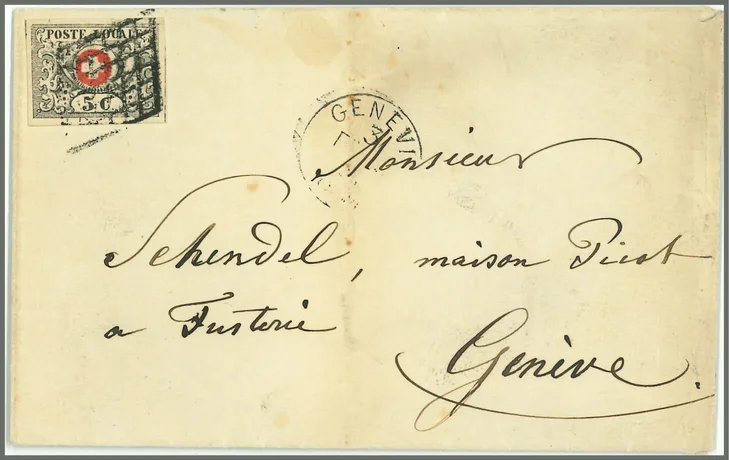 POSTE LOCALE
5 C
GENEV
Monsieur
Schendel, maison Picot
a Fusterie
Genève.